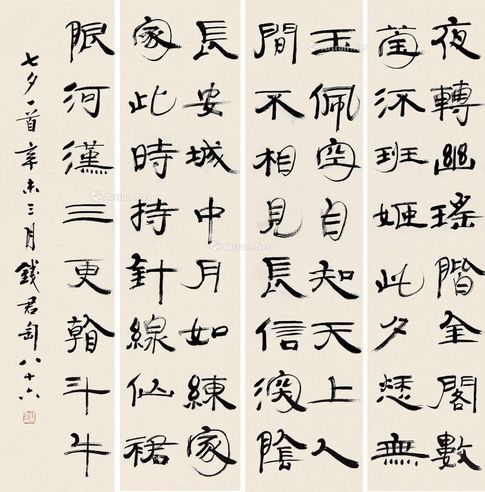 夜轉幽瑤階金閣數
螢流班姬此夕愁無
玉佩空自知天上人
間不相見長信深陰
長安城中月如練家
家此時持針線仙裙
限河漢三更看斗牛
七夕一首辛未三月錢君匋八十六
Artron.Net
Artron.Net